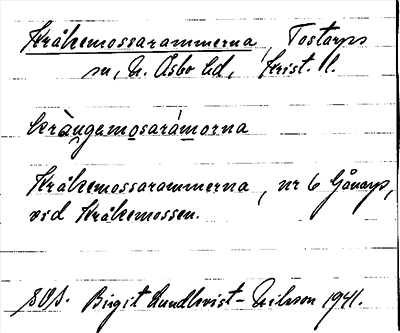 Kråkemossarammerna, Tostarps
sn, N. Åsbo hd, Krist. l.
kràngamosarámorna
Kråkemossarammerna, nr 6 Gånarp,
vid Kråkemossen.
Birgit Lundkvist-Nilsson 1941.